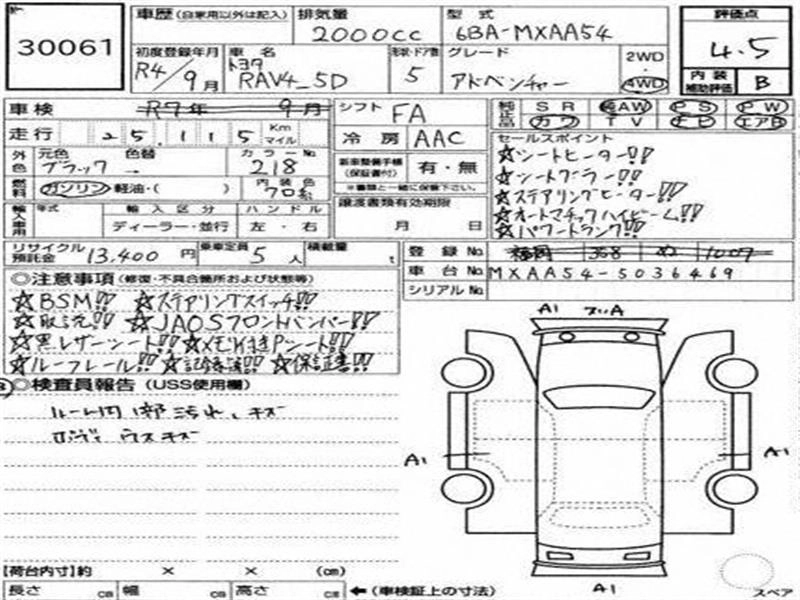 30061
車歴 (自家用以外は記入) 排気量 2000cc 型式 6BA-MXAA54
評価点 4.5
初度登録年月 R4/9月 車名 トヨタ RAV4_5D 形状・ドア数 5 グレード アドベンチャー 2WD・4WD
内装補助評価 B
車検 R7年 9月 シフト FA
純正品 SR 純AW PS PW
カワ TV ナビ エアB
走行 25,115 Km マイル 冷房 AAC
セールスポイント
外色 元色 ブラック 色替 → カラーNo. 218
新車整備手帳(保証書付) 有・無
※書類と一緒に保管下さい。
☆シートヒーター!!
☆シートクーラー!!
☆ステアリングヒーター!!
☆オートマチックハイビーム!!
☆パワートランク!!
燃料 ガソリン・軽油・( ) 内装色 クロ系
譲渡書類有効期限 月 日
輸入車用 年式 輸入区分 ハンドル
ディーラー・並行 左・右
リサイクル預託金 13,400円 乗車定員 5人 積載量 t
登録No. 福岡 368 ぬ 1007
車台No. MXAA54-5036469
シリアルNo.
◎注意事項 (修復・不具合箇所および状態等)
☆BSM!! ☆ステアリングスイッチ!!
☆取説!! ☆JAOSフロントバンパー!!
☆黒レザーシート!! ☆メモリ付きPシート!!
☆ルーフレール!! ☆記録簿!! ☆保証書!!
◎検査員報告 (USS使用欄)
ルーム内1部汚れ、キズ
ボディ ウスキズ
A1
A1
A1
A1
【荷台内寸】約 × × (cm)
長さ cm 幅 cm 高さ cm ←(車検証上の寸法)
スペア